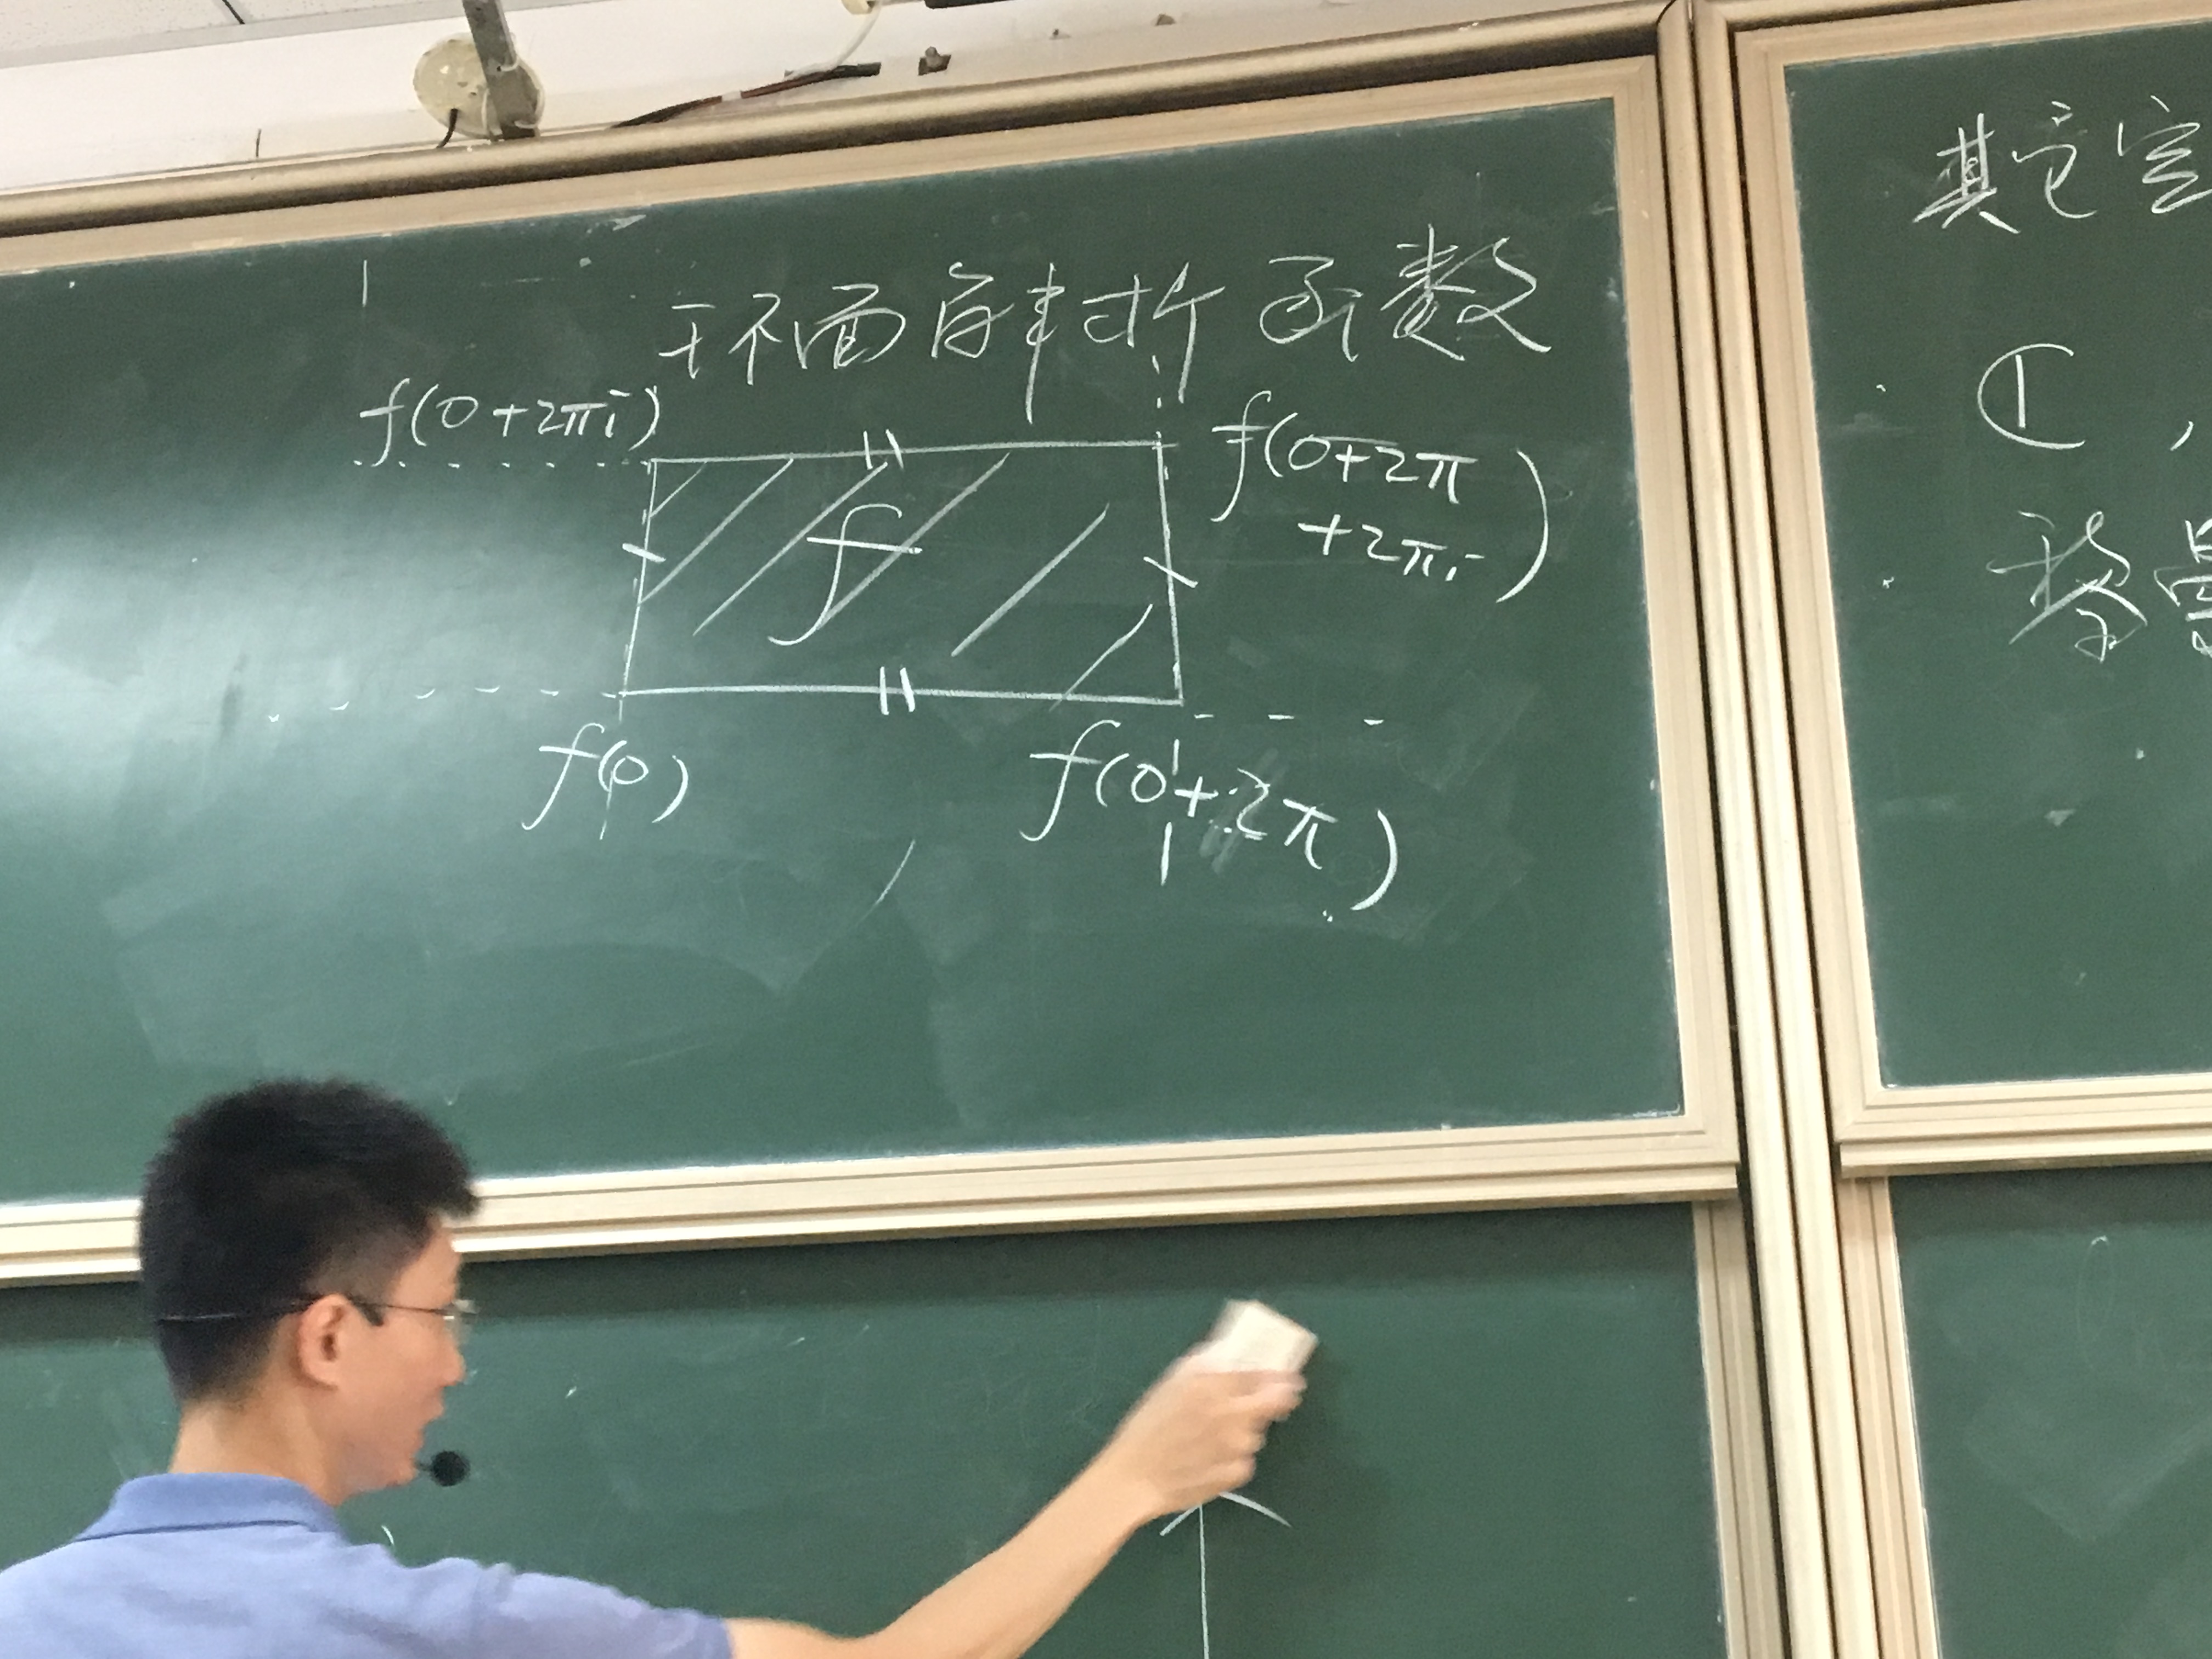 环面解析函数
f(0+2πi)
f(0+2π
+2πi)
f
f(0)
f(0+2π)
其它
①,